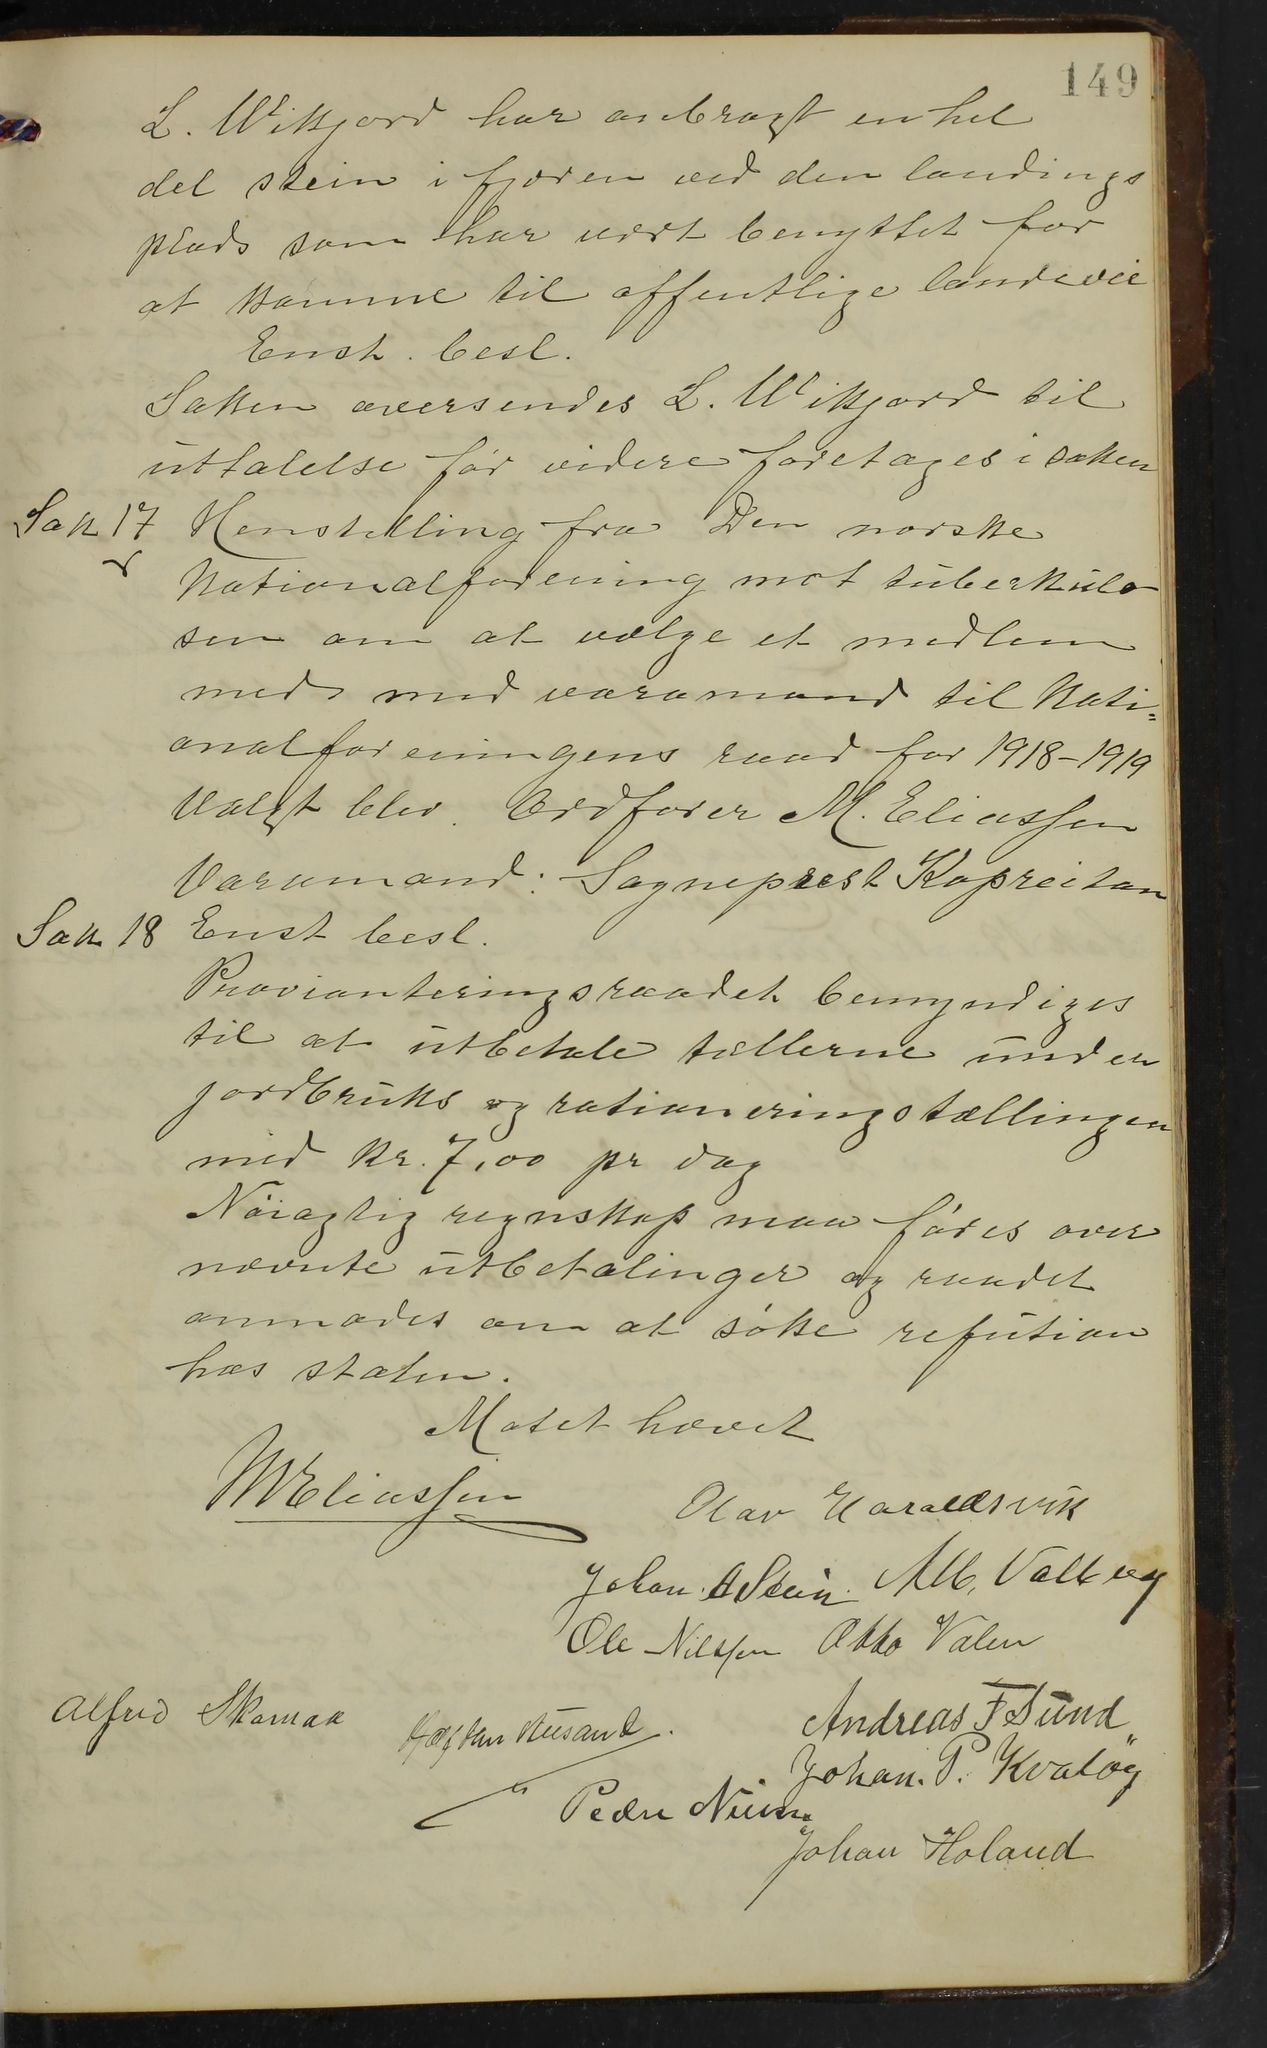 149
L. Wikjord har anbragt en hel
del stein i fjæren ved den landings
plads som har vært benyttet for
at komme til offentlige landevei
Enst. besl.
Saken oversendes L. Wikjord til
uttalelse før videre foretages i saken
Sak 17 Henstilling fra Den norske
Nationalforening mot tuberkulo
sen om at vælge et medlem
med med varamand til Nati=
onalforeningens raad for 1918-1919
Valgt blev. Ordfører M. Eliassen
Varamand: Sogneprest Kopreitan
Sak 18 Enst besl.
Provianteringsraadet bemyndiges
til at utbetale tællerne under
jordbruks og rationeringstællingen
med kr. 7,00 pr dag
Nöiagtig regnskap maa føres over
nævnte utbetalinger og raadet
anmodes om at søke refution
hos staten.
Møtet hævet
M Eliassen
Olav Haraldsvik
Johan A Stein. Alb. Valberg
Ole Nilssen Otto Valen
Alfred Skamaa
Andreas F Sund
Johan. P. Kvaløy
Peder
Johan Holand